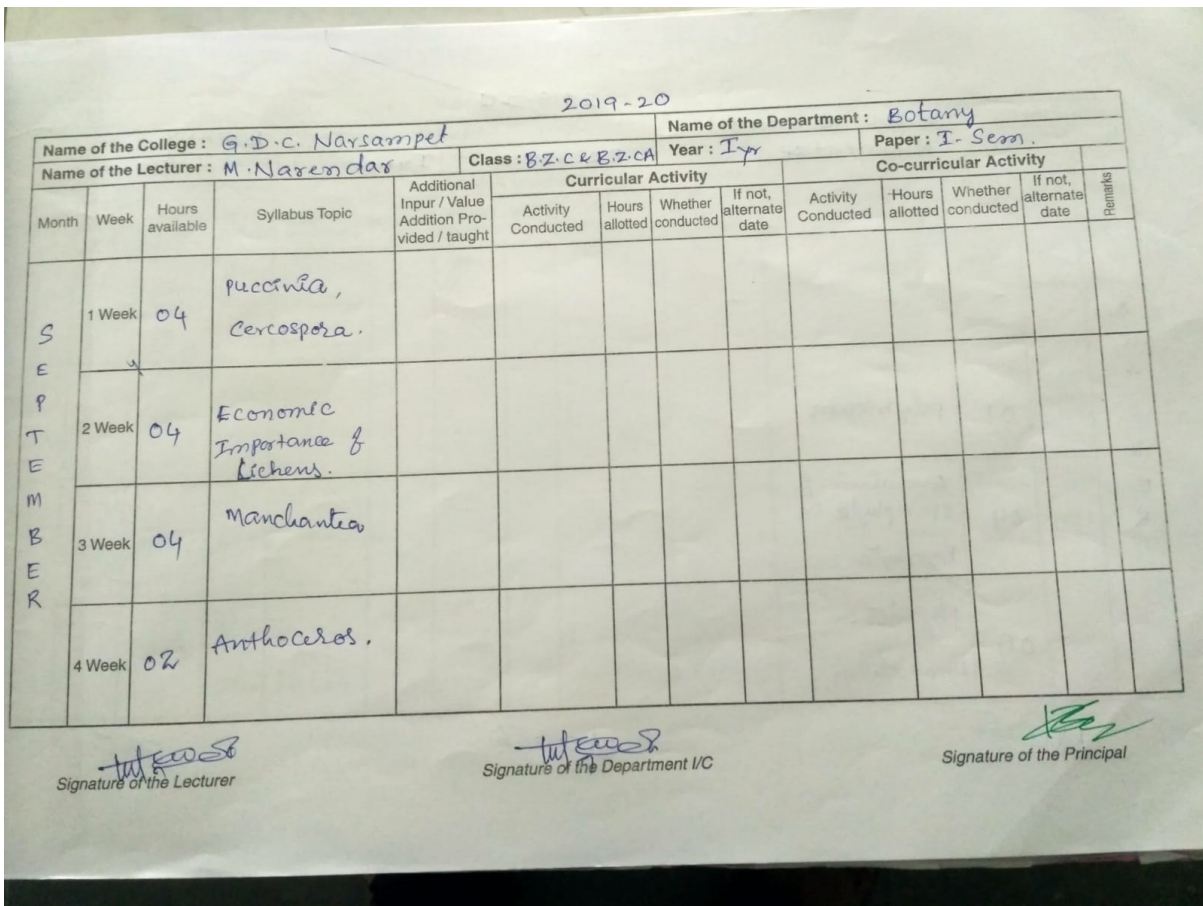 2019-20
Name of the College : G.D.C. Narsampet
Name of the Department : Botany
Name of the Lecturer : M. Narendar
Class : B.Z.C & B.Z.CA
Year : I yr
Paper : I- Sem.
Month
Week
Hours available
Syllabus Topic
Additional Inpur / Value Addition Pro-vided / taught
Curricular Activity
Co-curricular Activity
Activity Conducted
Hours allotted
Whether conducted
If not, alternate date
Activity Conducted
Hours allotted
Whether conducted
If not, alternate date
Remarks
SEPTEMBER
1 Week
04
Puccinia,
Cercospora.
2 Week
04
Economic
Importance of
Lichens.
3 Week
04
Manchantea
4 Week
02
Anthoceros.
Signature of the Lecturer
Signature of the Department I/C
Signature of the Principal